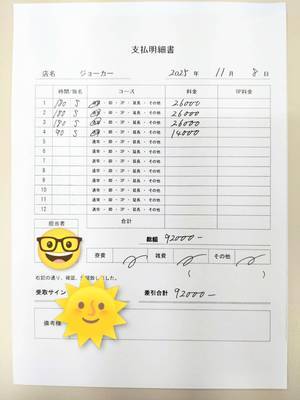 支払明細書
店名 ジョーカー 2025 年 11 月 8 日
時間/指名 コース 料金 OP料金
1 180 S ・即・3P・延長・その他 26000
2 180 S ・即・3P・延長・その他 26000
3 180 S ・即・3P・延長・その他 26000
4 90 S ・即・3P・延長・その他 14000
5 通常・即・3P・延長・その他
6 通常・即・3P・延長・その他
7 通常・即・3P・延長・その他
8 通常・即・3P・延長・その他
9 通常・即・3P・延長・その他
10 通常・即・3P・延長・その他
11 通常・即・3P・延長・その他
12 通常・即・3P・延長・その他
担当者 合計
総額 92000-
寮費 雑費 その他
( )
右記の通り、確認、 致しました。
受取サイン 差引合計 92000-
備考欄